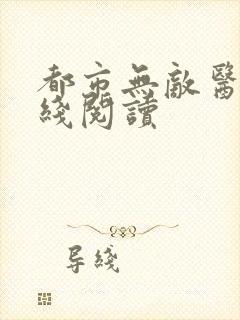 都市無敵醫
綫閱讀
导綫